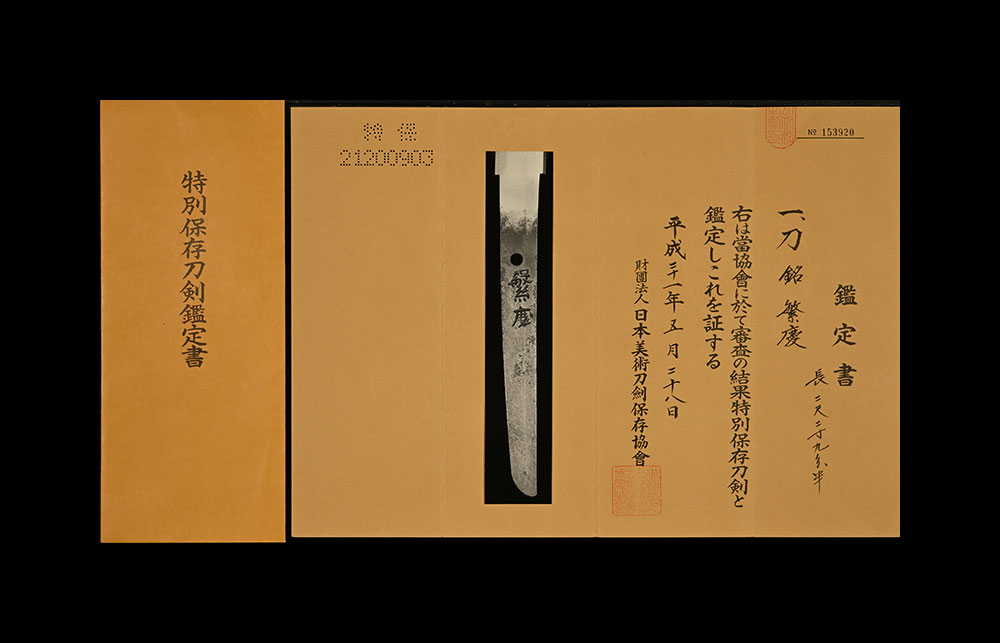 № 153920
鑑定書
一、刀 銘 繁慶
長 二尺二寸九分半
右は當協會に於て審査の結果特別保存刀剣と
鑑定しこれを証する
平成二十一年五月二十八日
財團法人 日本美術刀劍保存協會
繁慶
特保
21200903
特別保存刀剣鑑定書